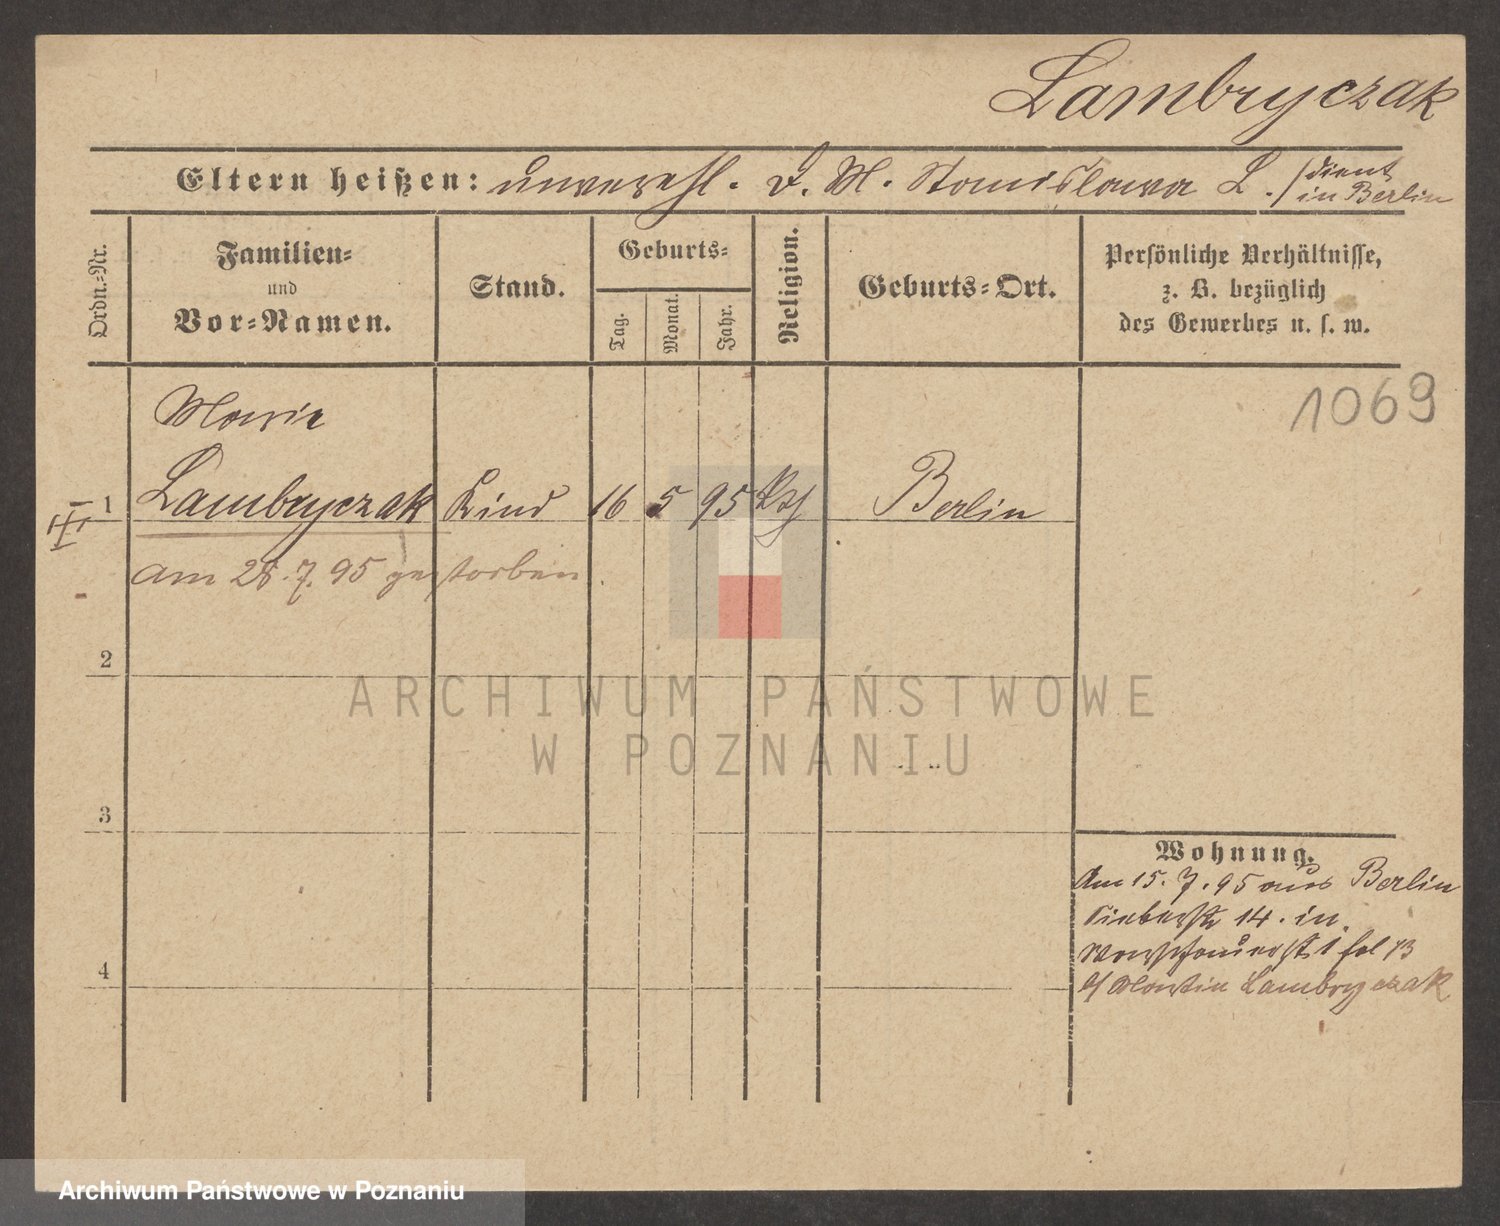 Lambryczak
Eltern heißen: unverehl. D. M. Stanislawa L. / dient
in Berlin
Ordn.=Nr.
Familien=
und
Vor=Namen.
Stand.
Geburts=
Tag.
Monat.
Jahr.
Religion.
Geburts=Ort.
Persönliche Verhältnisse,
z. B. bezüglich
des Gewerbes u. s. w.
1069
Marie
III 1 Lambryczak Kind 16 5 95 Berlin
am 28.7.95 gestorben.
2
ARCHIWUM PAŃSTWOWE
W POZNANIU
3
Wohnung.
Am 15.7.95 aus Berlin
14. in
1
b/ Martin Lambryczak
4
Archiwum Państwowe w Poznaniu